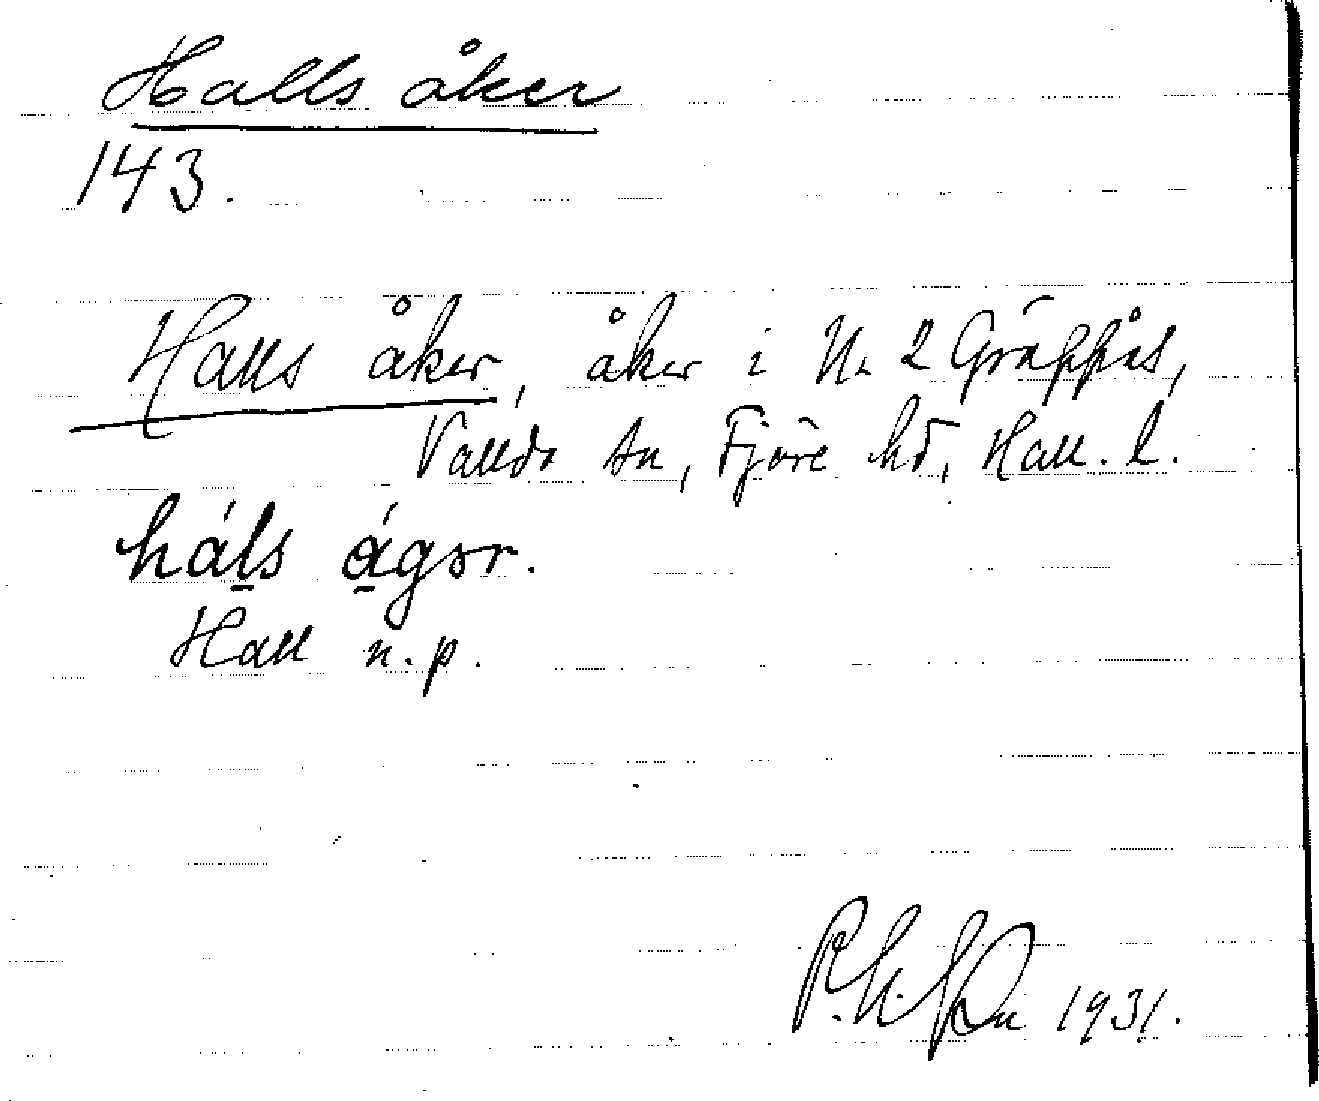 Halls åker
143.
Halls åker, åker i N. 2 Gräppås,
Vallda sn, Fjäre hd, Hall. l.
háls ágər.
Hall n.p.
1931.